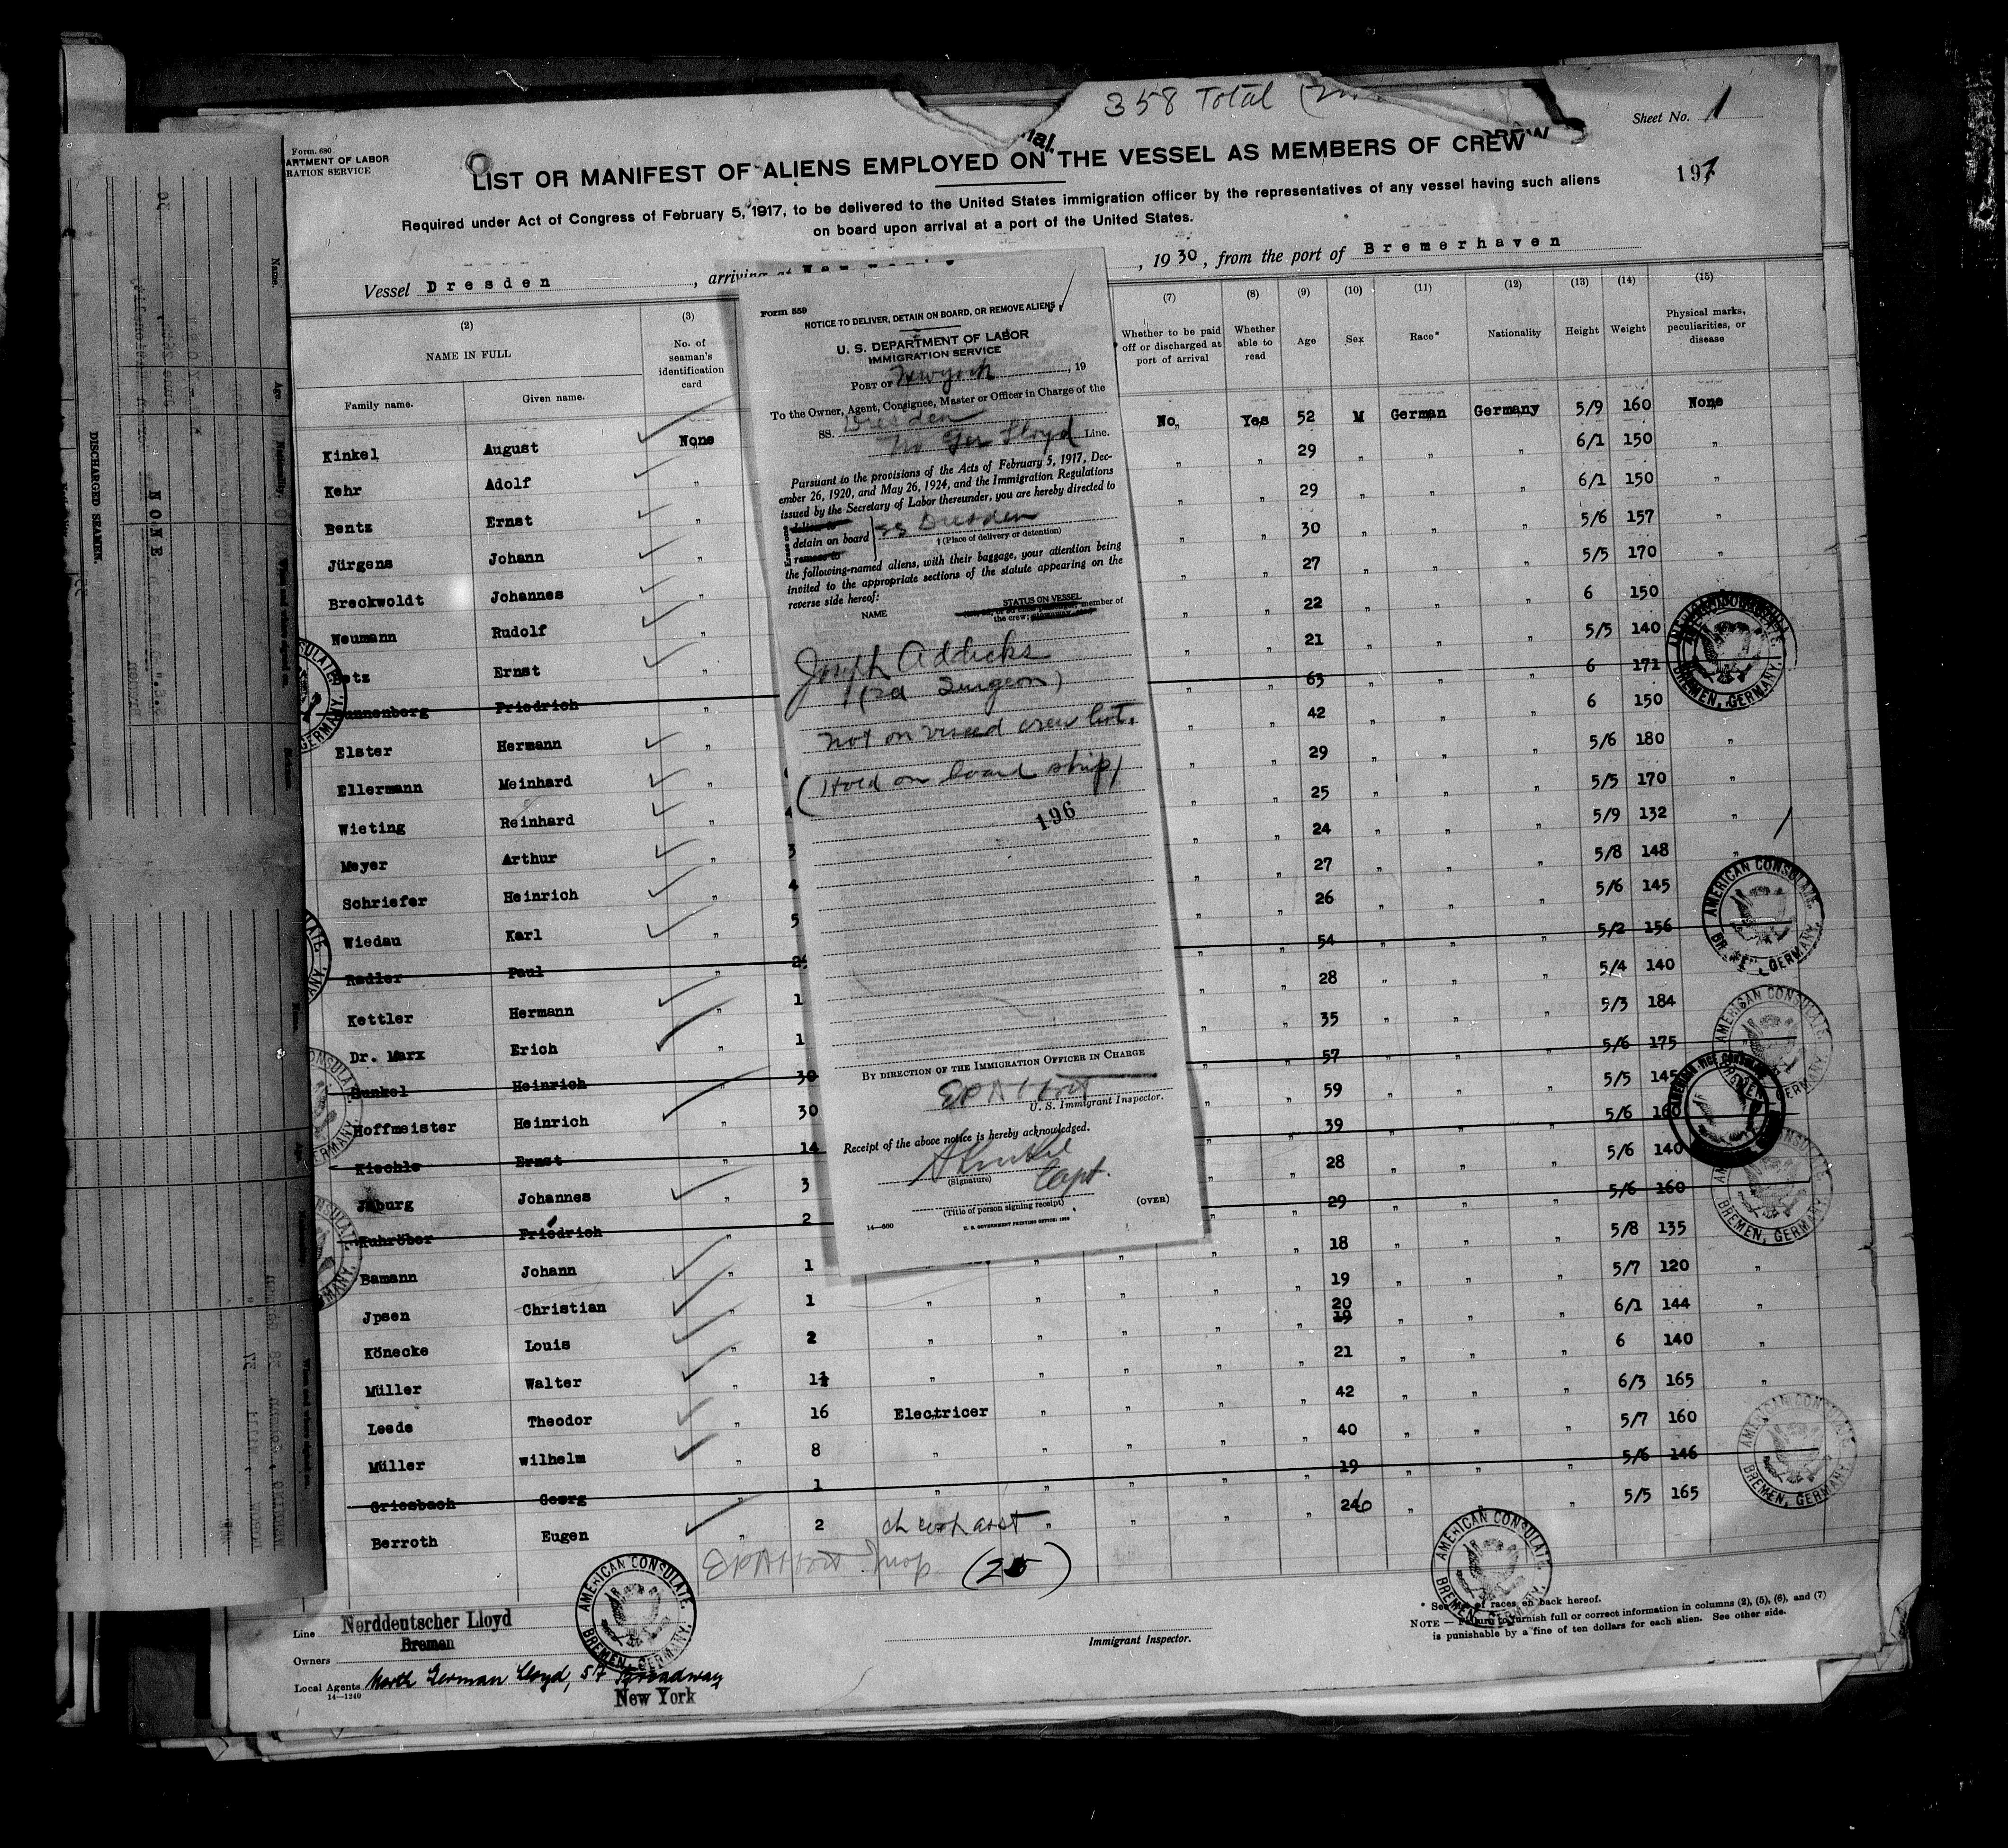 358 Total
Sheet No. 1
Form. 680
ARTMENT OF LABOR
RATION SERVICE
LIST OR MANIFEST OF ALIENS EMPLOYED ON THE VESSEL AS MEMBERS OF CREW
197
Required under Act of Congress of February 5, 1917, to be delivered to the United States immigration officer by the representatives of any vessel having such aliens
on board upon arrival at a port of the United States.
Vessel Dresden, arriving at , 1930, from the port of Bremerhaven
(2) (3) (7) (8) (9) (10) (11) (12) (13) (14) (15)
NAME IN FULL No. of seaman's identification card Whether to be paid off or discharged at port of arrival Whether able to read Age Sex Race* Nationality Height Weight Physical marks, peculiarities, or disease
Family name. Given name.
Kinkel August None No Yes 52 M German Germany 5/9 160 None
Kehr Adolf " " " 29 " " " 6/1 150 "
Bentz Ernst " " " 29 " " " 6/1 150 "
Jürgens Johann " " " 30 " " " 5/6 157 "
Breckwoldt Johannes " " " 27 " " " 5/5 170 "
Neumann Rudolf " " " 22 " " " 6 150
Betz Ernst " " " 21 " " " 5/5 140
Dannenberg Friedrich " " " 63 " " " 6 171
Elster Hermann " " " 42 " " " 6 150
Ellermann Meinhard " " " 29 " " " 5/6 180 "
Wieting Reinhard " " " 25 " " " 5/5 170 "
Meyer Arthur " 3 " " 24 " " " 5/9 132 "
Schriefer Heinrich " 4 " " 27 " " " 5/8 148 "
Wiedau Karl " 5 " " 26 " " " 5/6 145
Radler Paul " " " 54 " " " 5/2 156
Kettler Hermann " 1 " " 28 " " " 5/4 140
Dr. Marx Erich " 1 " " 35 " " " 5/3 184
Gunkel Heinrich " 30 " " 57 " " " 5/6 175
Hoffmeister Heinrich " 30 " " 59 " " " 5/5 145
Kiechle Ernst " 14 " " 39 " " " 5/6
Jaburg Johannes " 3 " " 28 " " " 5/6 140
Kuhröber Friedrich " 2 " " 29 " " " 5/6 160
Bamann Johann " 1 " " 18 " " " 5/8 135
Jpsen Christian " 1 " " " " " 19 " " " 5/7 120 "
Könecke Louis " 2 " " " " " 20 19 " " " 6/1 144 "
Müller Walter " 11 " " " " " 21 " " " 6 140 "
Leede Theodor " 16 Electricer " " " " 42 " " " 6/3 165 "
Müller wilhelm " 8 " " " " " 40 " " " 5/7 160
Griesbach Georg " 1 " " " " " 19 " " " 5/6 146
Berroth Eugen " 2 " " " " 26 " " 5/5 165
(25)
Line Norddeutscher Lloyd
Bremen
Owners
Local Agents North German Lloyd, 57 Broadway
New York
14—1240
Immigrant Inspector.
* See list of races on back hereof.
NOTE — Failure to furnish full or correct information in columns (2), (5), (6), and (7)
is punishable by a fine of ten dollars for each alien. See other side.
Form 559
NOTICE TO DELIVER, DETAIN ON BOARD, OR REMOVE ALIENS
U. S. DEPARTMENT OF LABOR
IMMIGRATION SERVICE
PORT OF New York, 19
To the Owner, Agent, Consignee, Master or Officer in Charge of the
SS. Dresden
No Ger Lloyd Line.
Pursuant to the provisions of the Acts of February 5, 1917, Dec-
ember 26, 1920, and May 26, 1924, and the Immigration Regulations
issued by the Secretary of Labor thereunder, you are hereby directed to
deliver to
detain on board SS Dresden
remove to † (Place of delivery or detention)
the following-named aliens, with their baggage, your attention being
invited to the appropriate sections of the statute appearing on the
reverse side hereof:
NAME STATUS ON VESSEL
member of
the crew,
Joseph Addicks
(2d Surgeon)
not on visaed crew list.
(Hold on board ship)
196
BY DIRECTION OF THE IMMIGRATION OFFICER IN CHARGE
U. S. Immigrant Inspector.
Receipt of the above notice is hereby acknowledged.
Capt.
(Signature)
(Title of person signing receipt) (OVER)
14—600 U. S. GOVERNMENT PRINTING OFFICE
AMERICAN CONSULATE. BREMEN, GERMANY.
DISCHARGED SEAMEN.
NONE